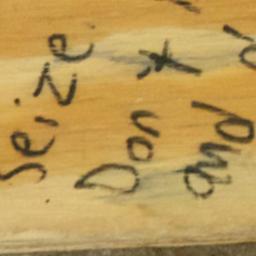 Seize
Don *
and